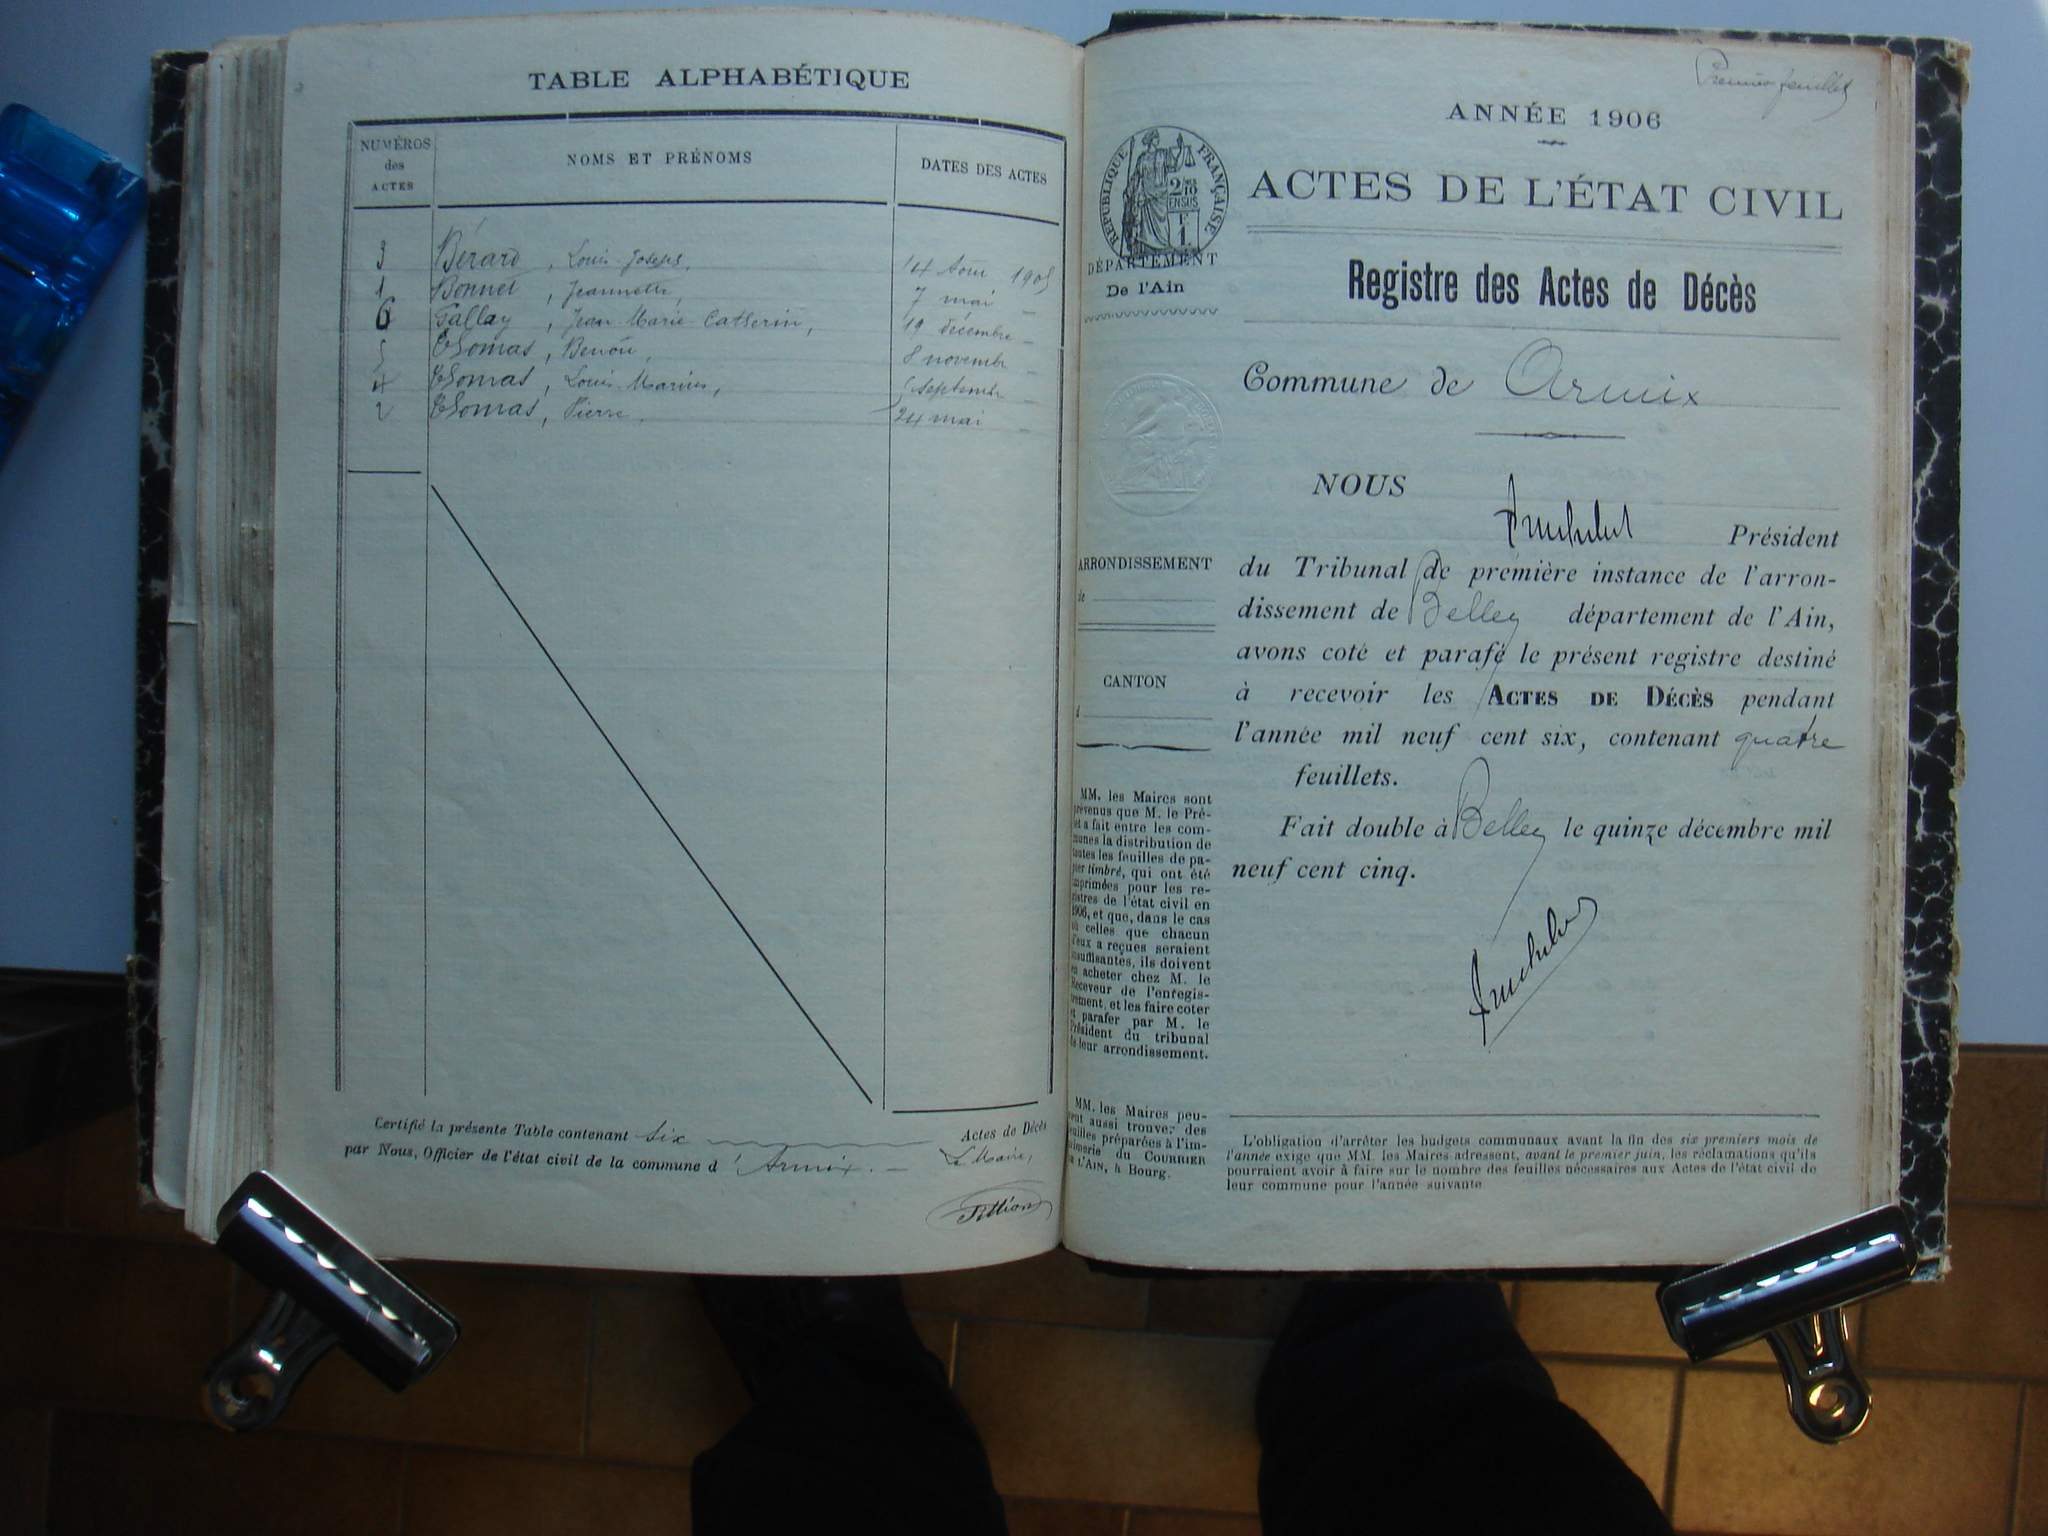 TABLE ALPHABÉTIQUE
NUMÉROS des ACTES
NOMS ET PRÉNOMS
DATES DES ACTES
3 Bérard, Louis Joseph, 14 Août 1905
1 Bonnet, Jeannette, 7 mai _
6 Gallay, Jean Marie Catherin, 19 décembre _
5 Thomas, Benoit, 8 novembre _
4 Thomas, Louis Marius, 5 septembre _
2 Thomas, Pierre. 24 mai _
Certifié la présente Table contenant six Actes de Décès
par Nous, Officier de l'état civil de la commune d'Armix. Le Maire,
Premier feuillet
ANNÉE 1906
RÉPUBLIQUE FRANÇAISE
ACTES DE L'ÉTAT CIVIL
DÉPARTEMENT
De l'Ain
Registre des Actes de Décès
Commune de Armix
NOUS
Président
du Tribunal de première instance de l'arron-
dissement de Belley département de l'Ain,
avons coté et parafé le présent registre destiné
à recevoir les ACTES DE DÉCÈS pendant
l'année mil neuf cent six, contenant quatre
feuillets.
Fait double à Belley le quinze décembre mil
neuf cent cinq.
ARRONDISSEMENT
de
CANTON
MM. les Maires sont
prévenus que M. le Pré-
fet a fait entre les com-
munes la distribution de
toutes les feuilles de pa-
pier timbré, qui ont été
imprimées pour les re-
gistres de l'état civil en
1906, et que, dans le cas
où celles que chacun
d'eux a reçues seraient
insuffisantes, ils doivent
en acheter chez M. le
Receveur de l'enregis-
trement, et les faire coter
et parafer par M. le
Président du tribunal
de leur arrondissement.
MM. les Maires peu-
vent aussi trouver des
feuilles préparées à l'im-
primerie du COURRIER
DE L'AIN, à Bourg.
L'obligation d'arrêter les budgets communaux avant la fin des six premiers mois de
l'année exige que MM. les Maires adressent, avant le premier juin, les réclamations qu'ils
pourraient avoir à faire sur le nombre des feuilles nécessaires aux Actes de l'état civil de
leur commune pour l'année suivante